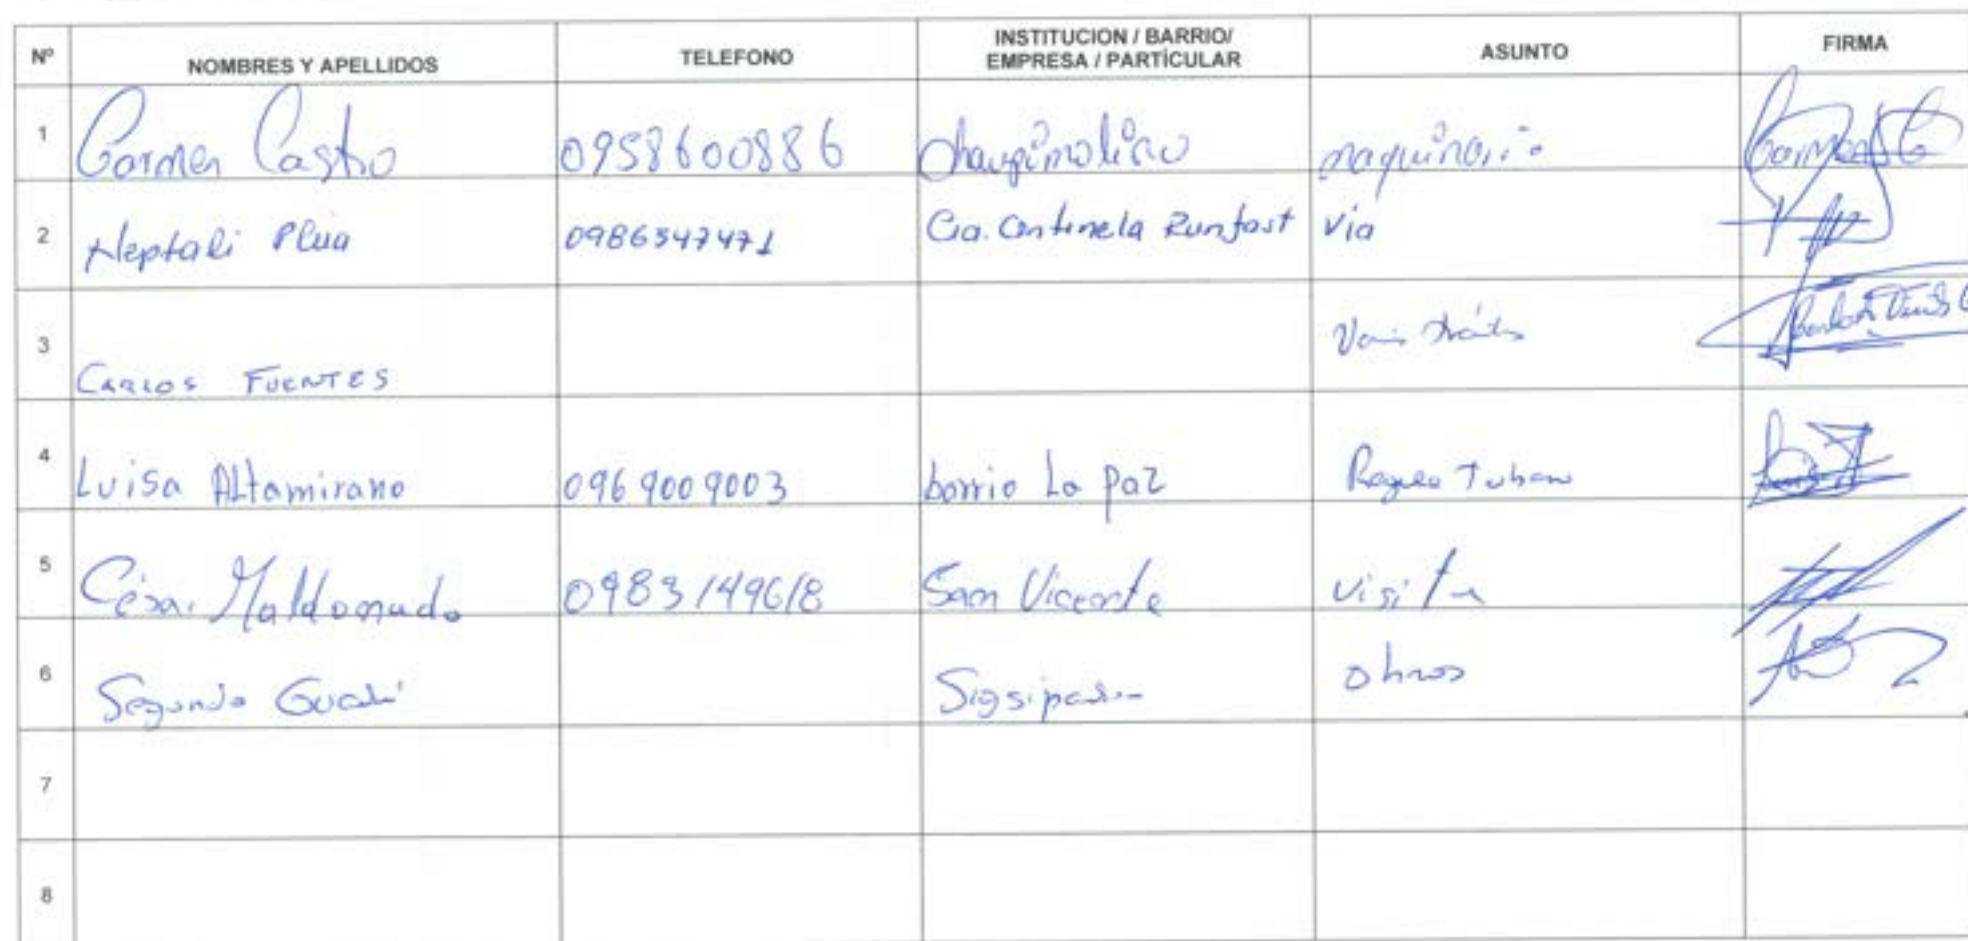 Nº NOMBRES Y APELLIDOS TELEFONO INSTITUCION / BARRIO/ EMPRESA / PARTÍCULAR ASUNTO FIRMA
1 Carmen Castro 0958600886 Chaupimolino maquinaria
2 Neptali Plua 0986547471 Cia. Centinela Runfast via
3 CARLOS FUENTES
4 Luisa Altamirano 0969009003 barrio La Paz
5 César Maldonado 0983149618 San Vicente visita
6 Segundo
7
8